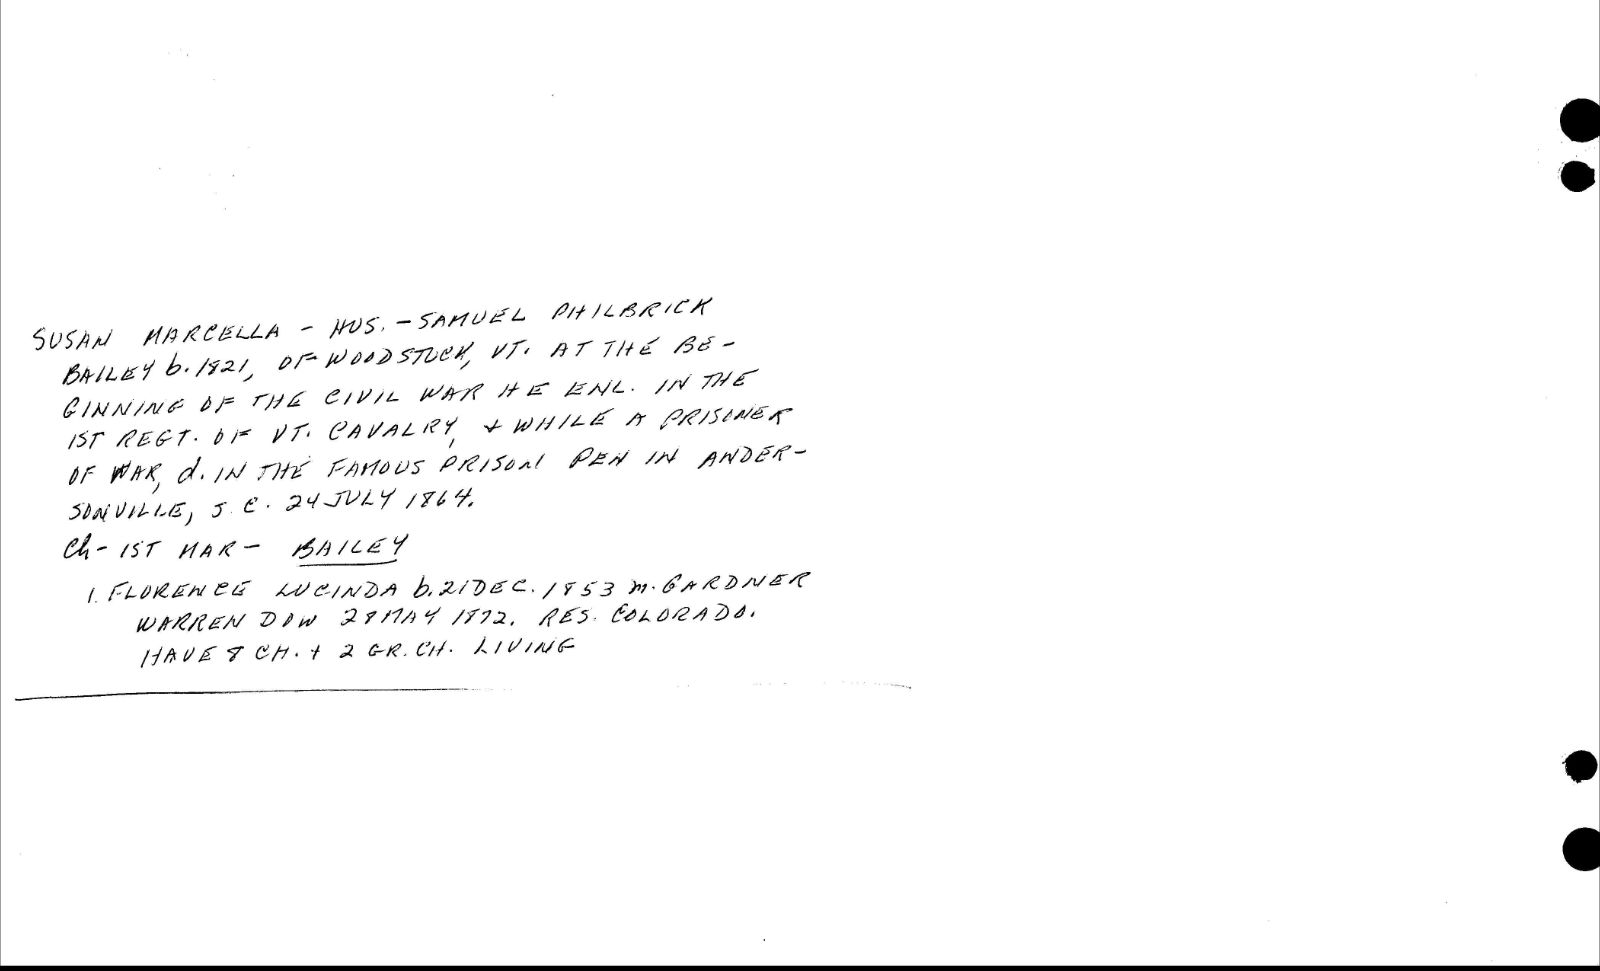 SUSAN MARCELLA - HUS. - SAMUEL PHILBRICK
BAILEY b. 1821, OF WOODSTOCK, VT. AT THE BE-
GINNING OF THE CIVIL WAR HE ENL. IN THE
1ST REGT. OF VT. CAVALRY, + WHILE A PRISONER
OF WAR, d. IN THE FAMOUS PRISON PEN IN ANDER-
SONVILLE, S.C. 24 JULY 1864.
Ch - 1ST MAR - BAILEY
1. FLORENCE LUCINDA b. 21 DEC. 1853 m. GARDNER
WARREN DOW 28 MAY 1872. RES. COLORADO.
HAVE 8 CH. + 2 GR. CH. LIVING